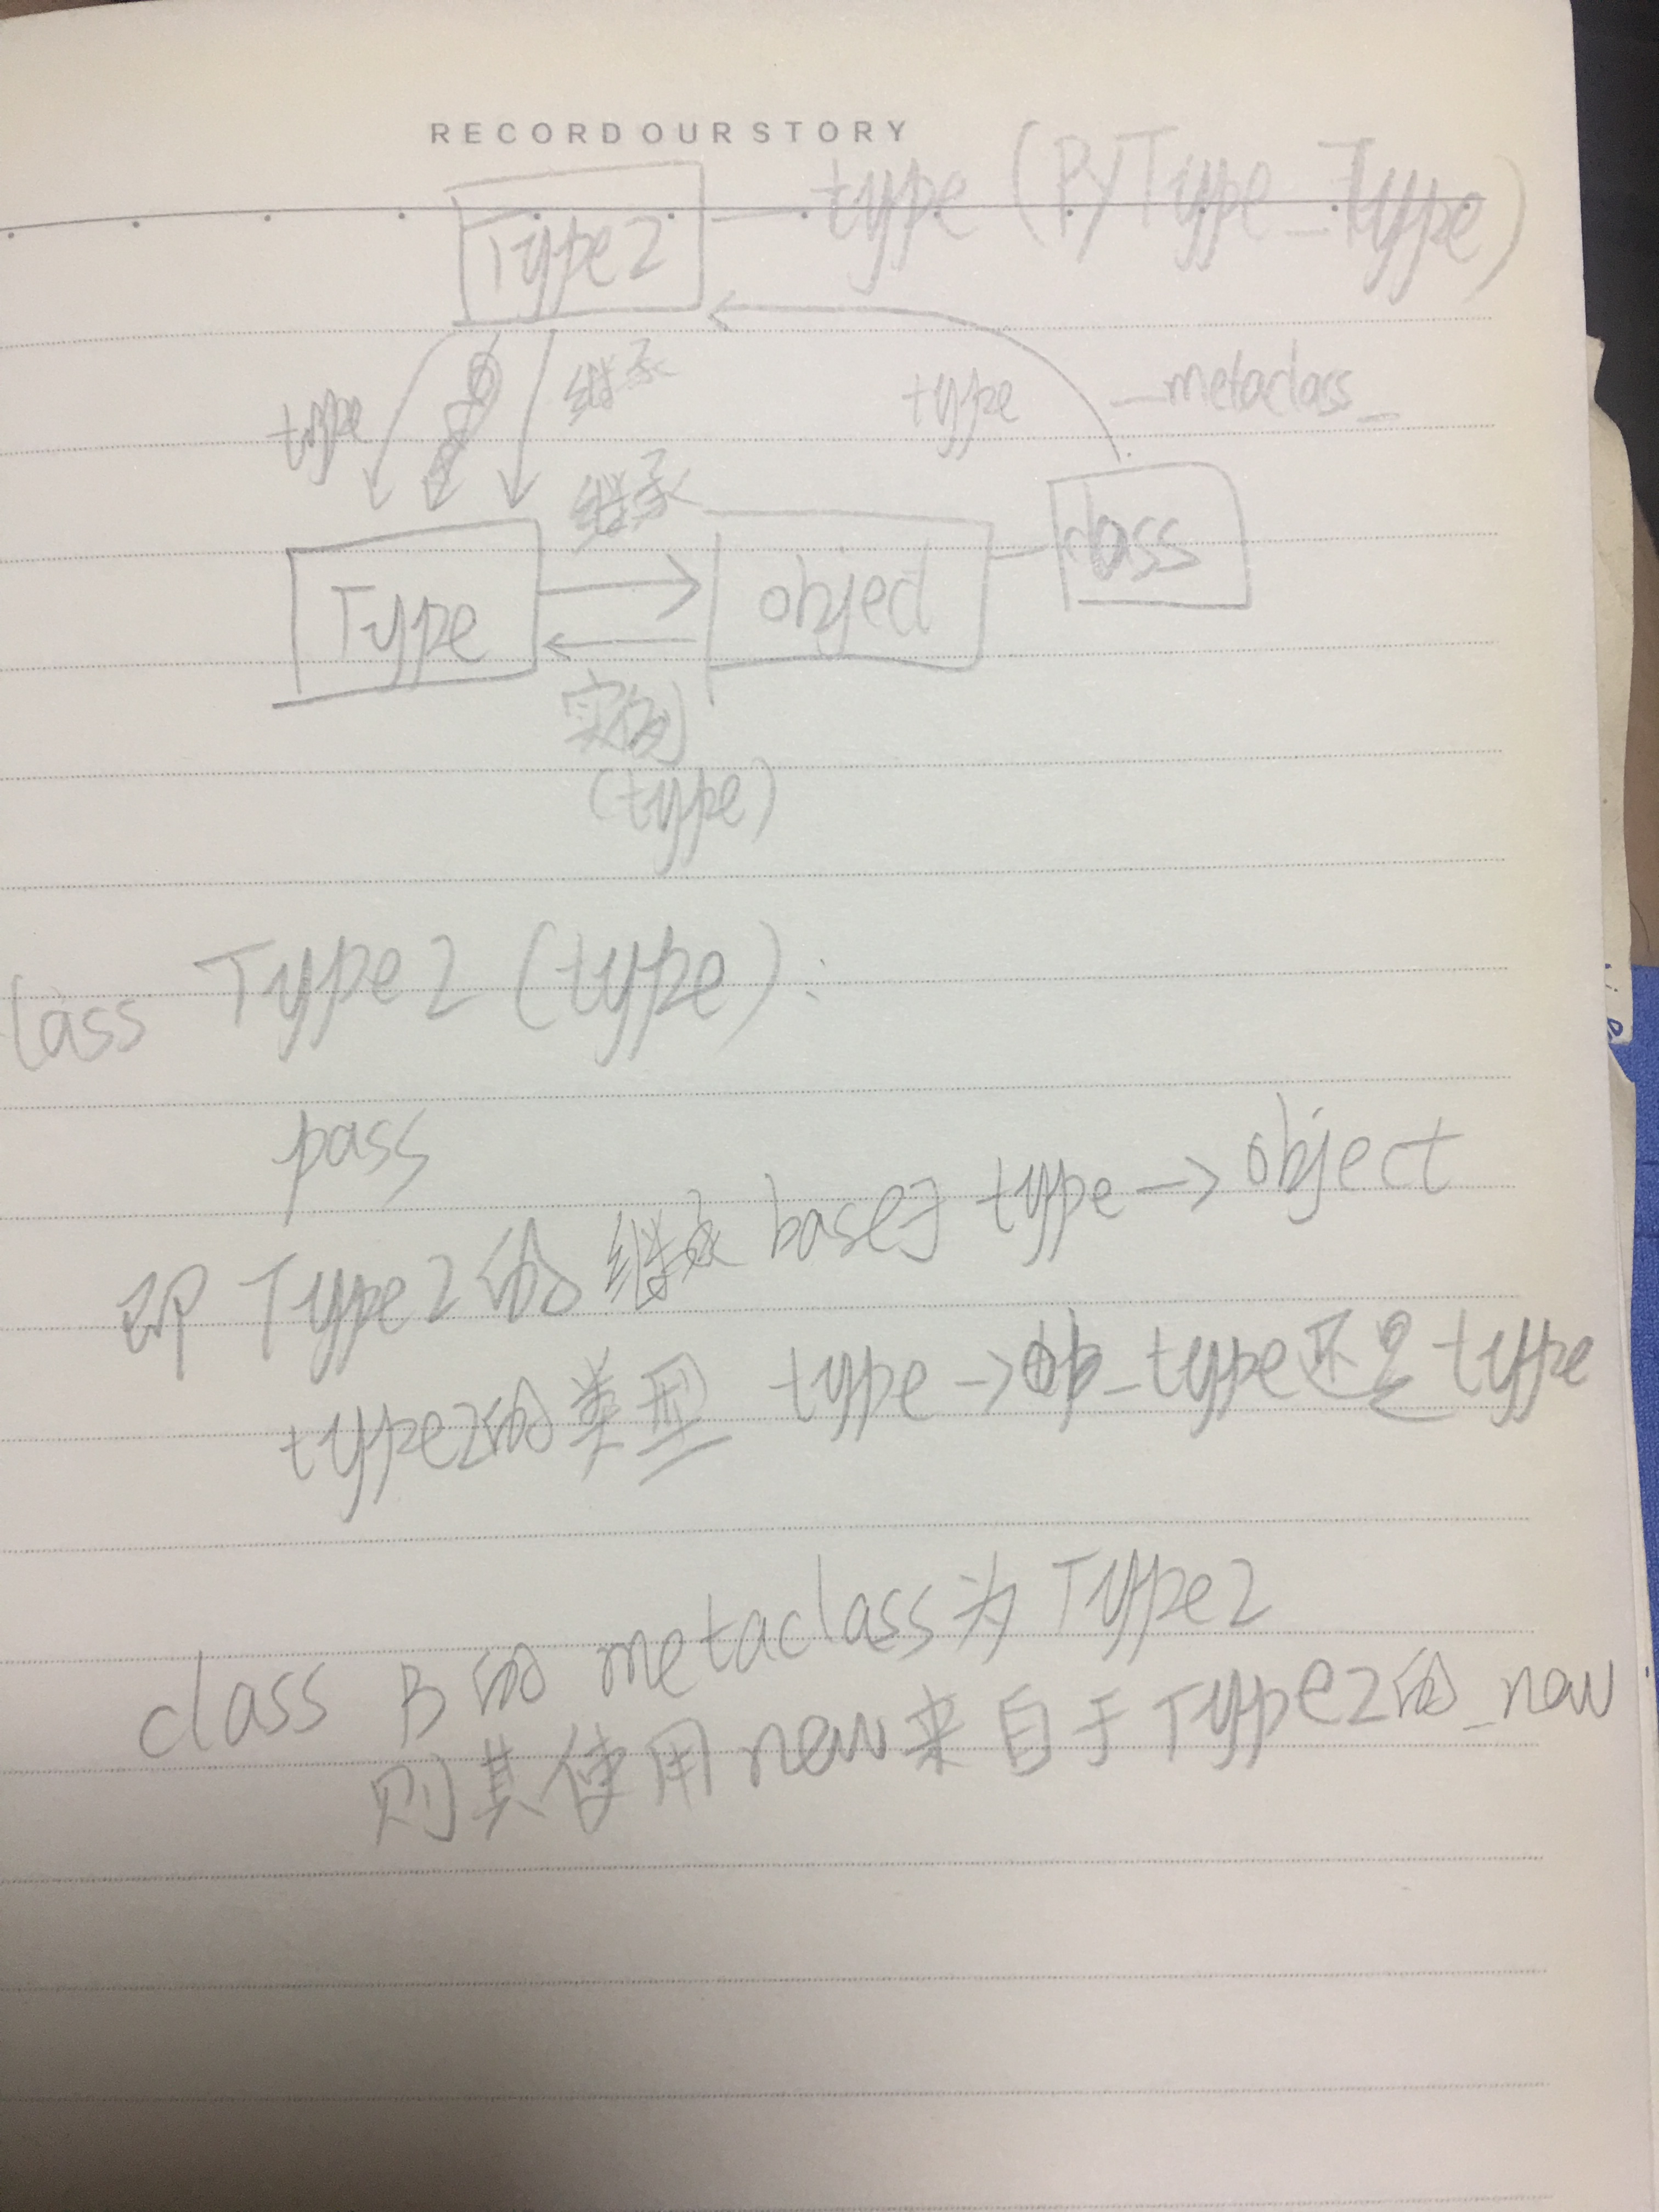 RECORD OUR STORY
Type2 type (PyType_Type)
type 继承 type _metaclass_
继承
Type object class
实例
(type)
lass Type2 (type):
pass
即 Type2的 继承 base于 type -> object
type2的类型 type -> ob_type还是 type
class B的 metaclass为 Type2
则其使用new来自于Type2的_new